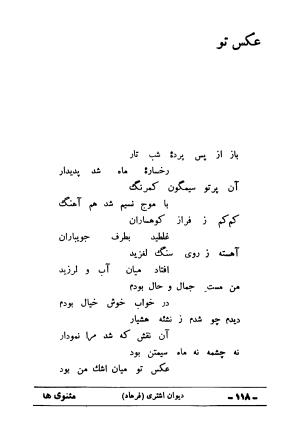 عکس تو
باز از پس پردهٔ شب تار
رخسارهٔ ماه شد پدیدار
آن پرتو سیمگون کمرنگ
با موج نسیم شد هم آهنگ
کم‌کم ز فراز کوهساران
غلطید بطرف جویباران
آهسته ز روی سنگ لغزید
افتاد میان آب و لرزید
من مست جمال و حال بودم
در خواب خوش خیال بودم
دیدم چو شدم ز نشئه هشیار
آن نقش که شد مرا نمودار
نه چشمه نه ماه سیمتن بود
عکس تو میان اشک من بود
- ۱۱۸ - دیوان اشتری (فرهاد) مثنوی ها